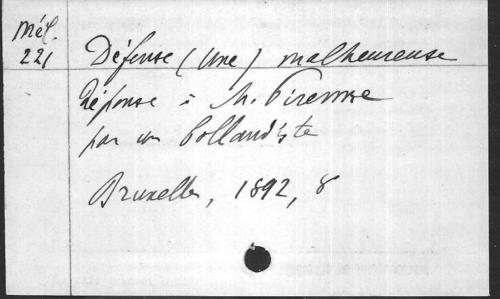 Mél.
221
Défense (Une) malheureuse
Réponse à M. Pirenne
par un bollandiste
Bruxelles, 1892, 8